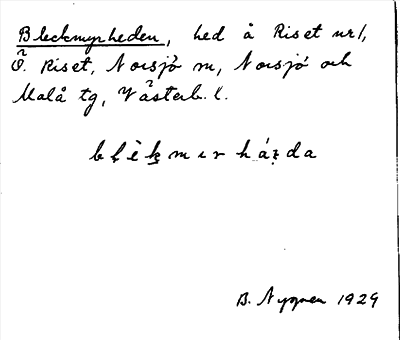 Bleckmyrheden, hed å Riset nr 1,
Ö. Riset, Norsjö sn, Norsjö och
Malå tg, Västerb. l.
B. Nygren 1929